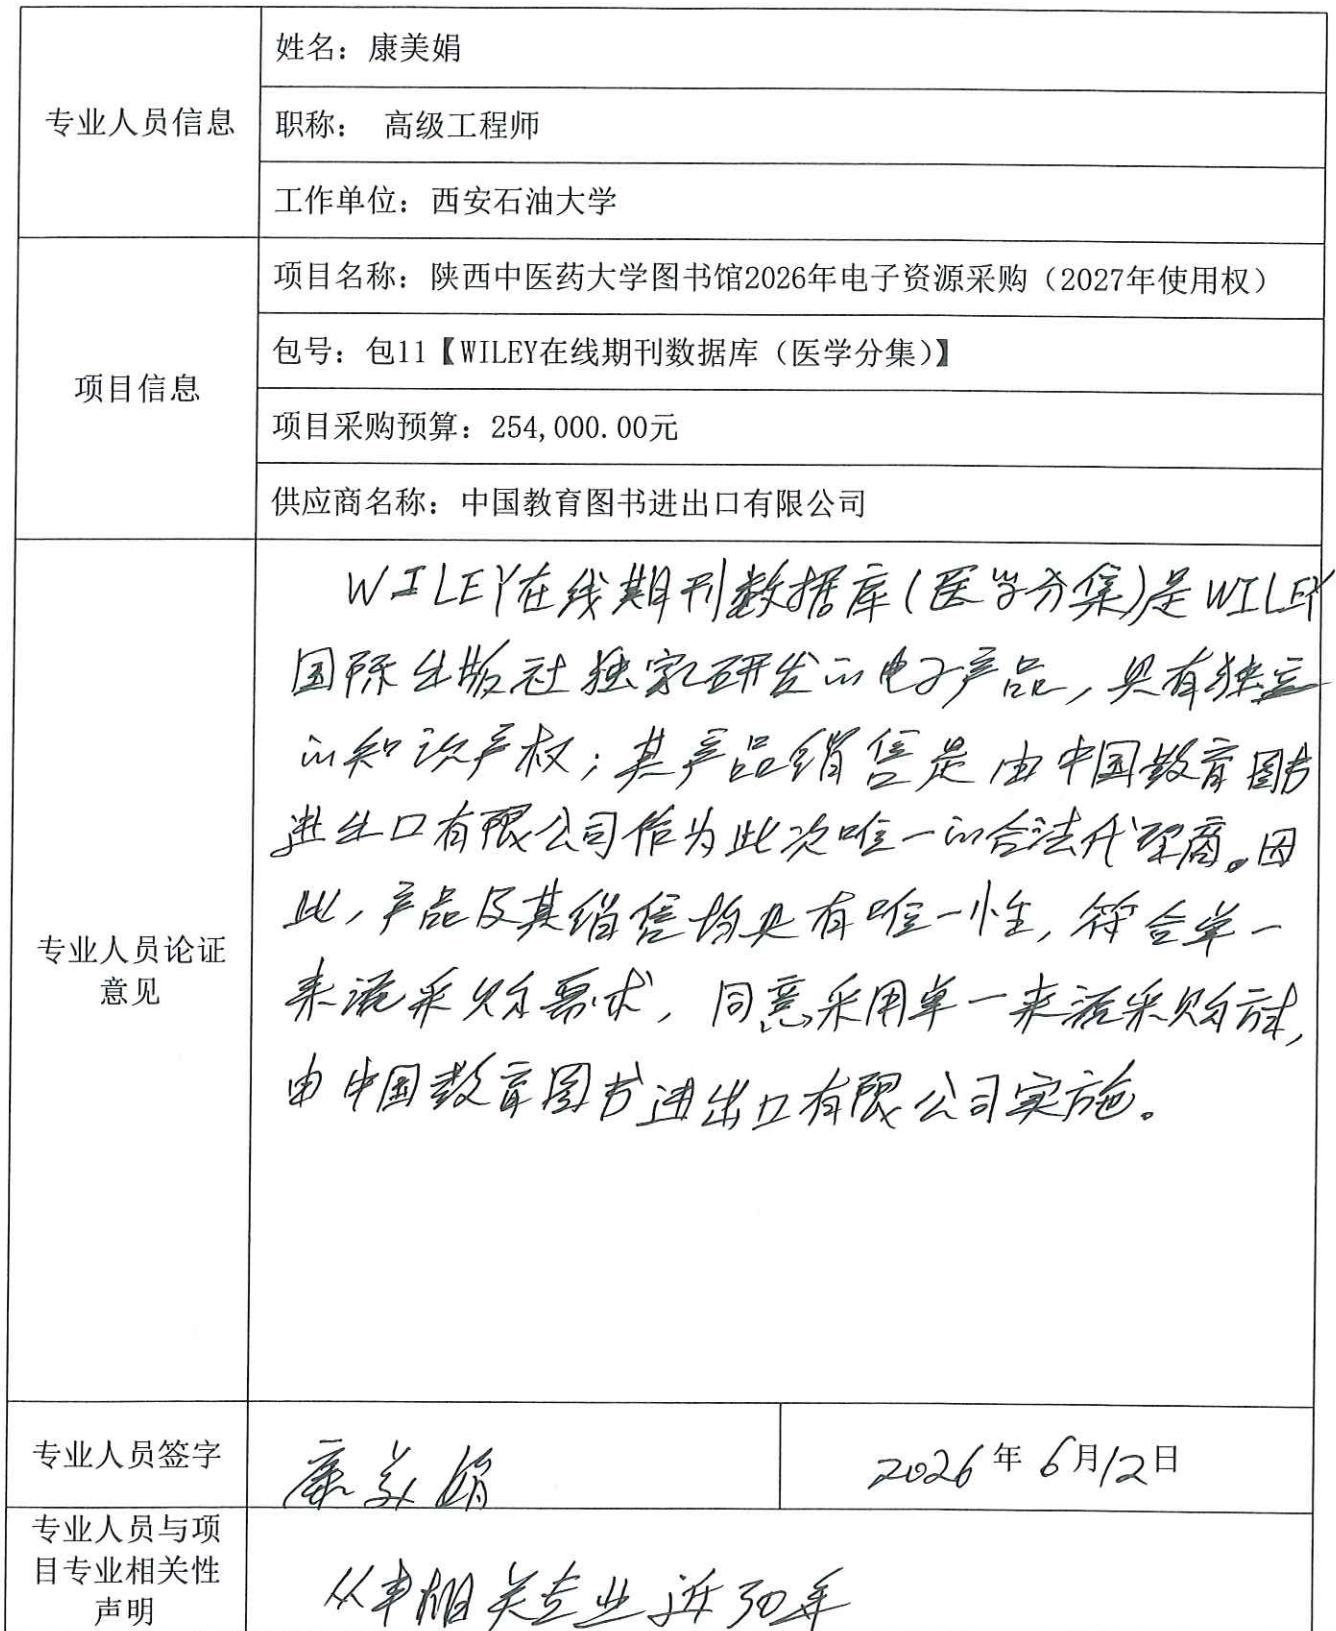 专业人员信息
姓名：康美娟
职称： 高级工程师
工作单位：西安石油大学
项目信息
项目名称：陕西中医药大学图书馆2026年电子资源采购（2027年使用权）
包号：包11【WILEY在线期刊数据库（医学分集）】
项目采购预算：254,000.00元
供应商名称：中国教育图书进出口有限公司
专业人员论证
意见
WILEY在线期刊数据库(医学分集)是WILEY
国际出版社独家研发的电子产品，具有独立
的知识产权；其产品销售是由中国教育图书
进出口有限公司作为此次唯一的合法代理商。因
此，产品及其销售均具有唯一性，符合单一
来源采购需求，同意采用单一来源采购方式，
由中国教育图书进出口有限公司实施。
专业人员签字
康美娟
2026年6月12日
专业人员与项
目专业相关性
声明
从事相关专业近30年